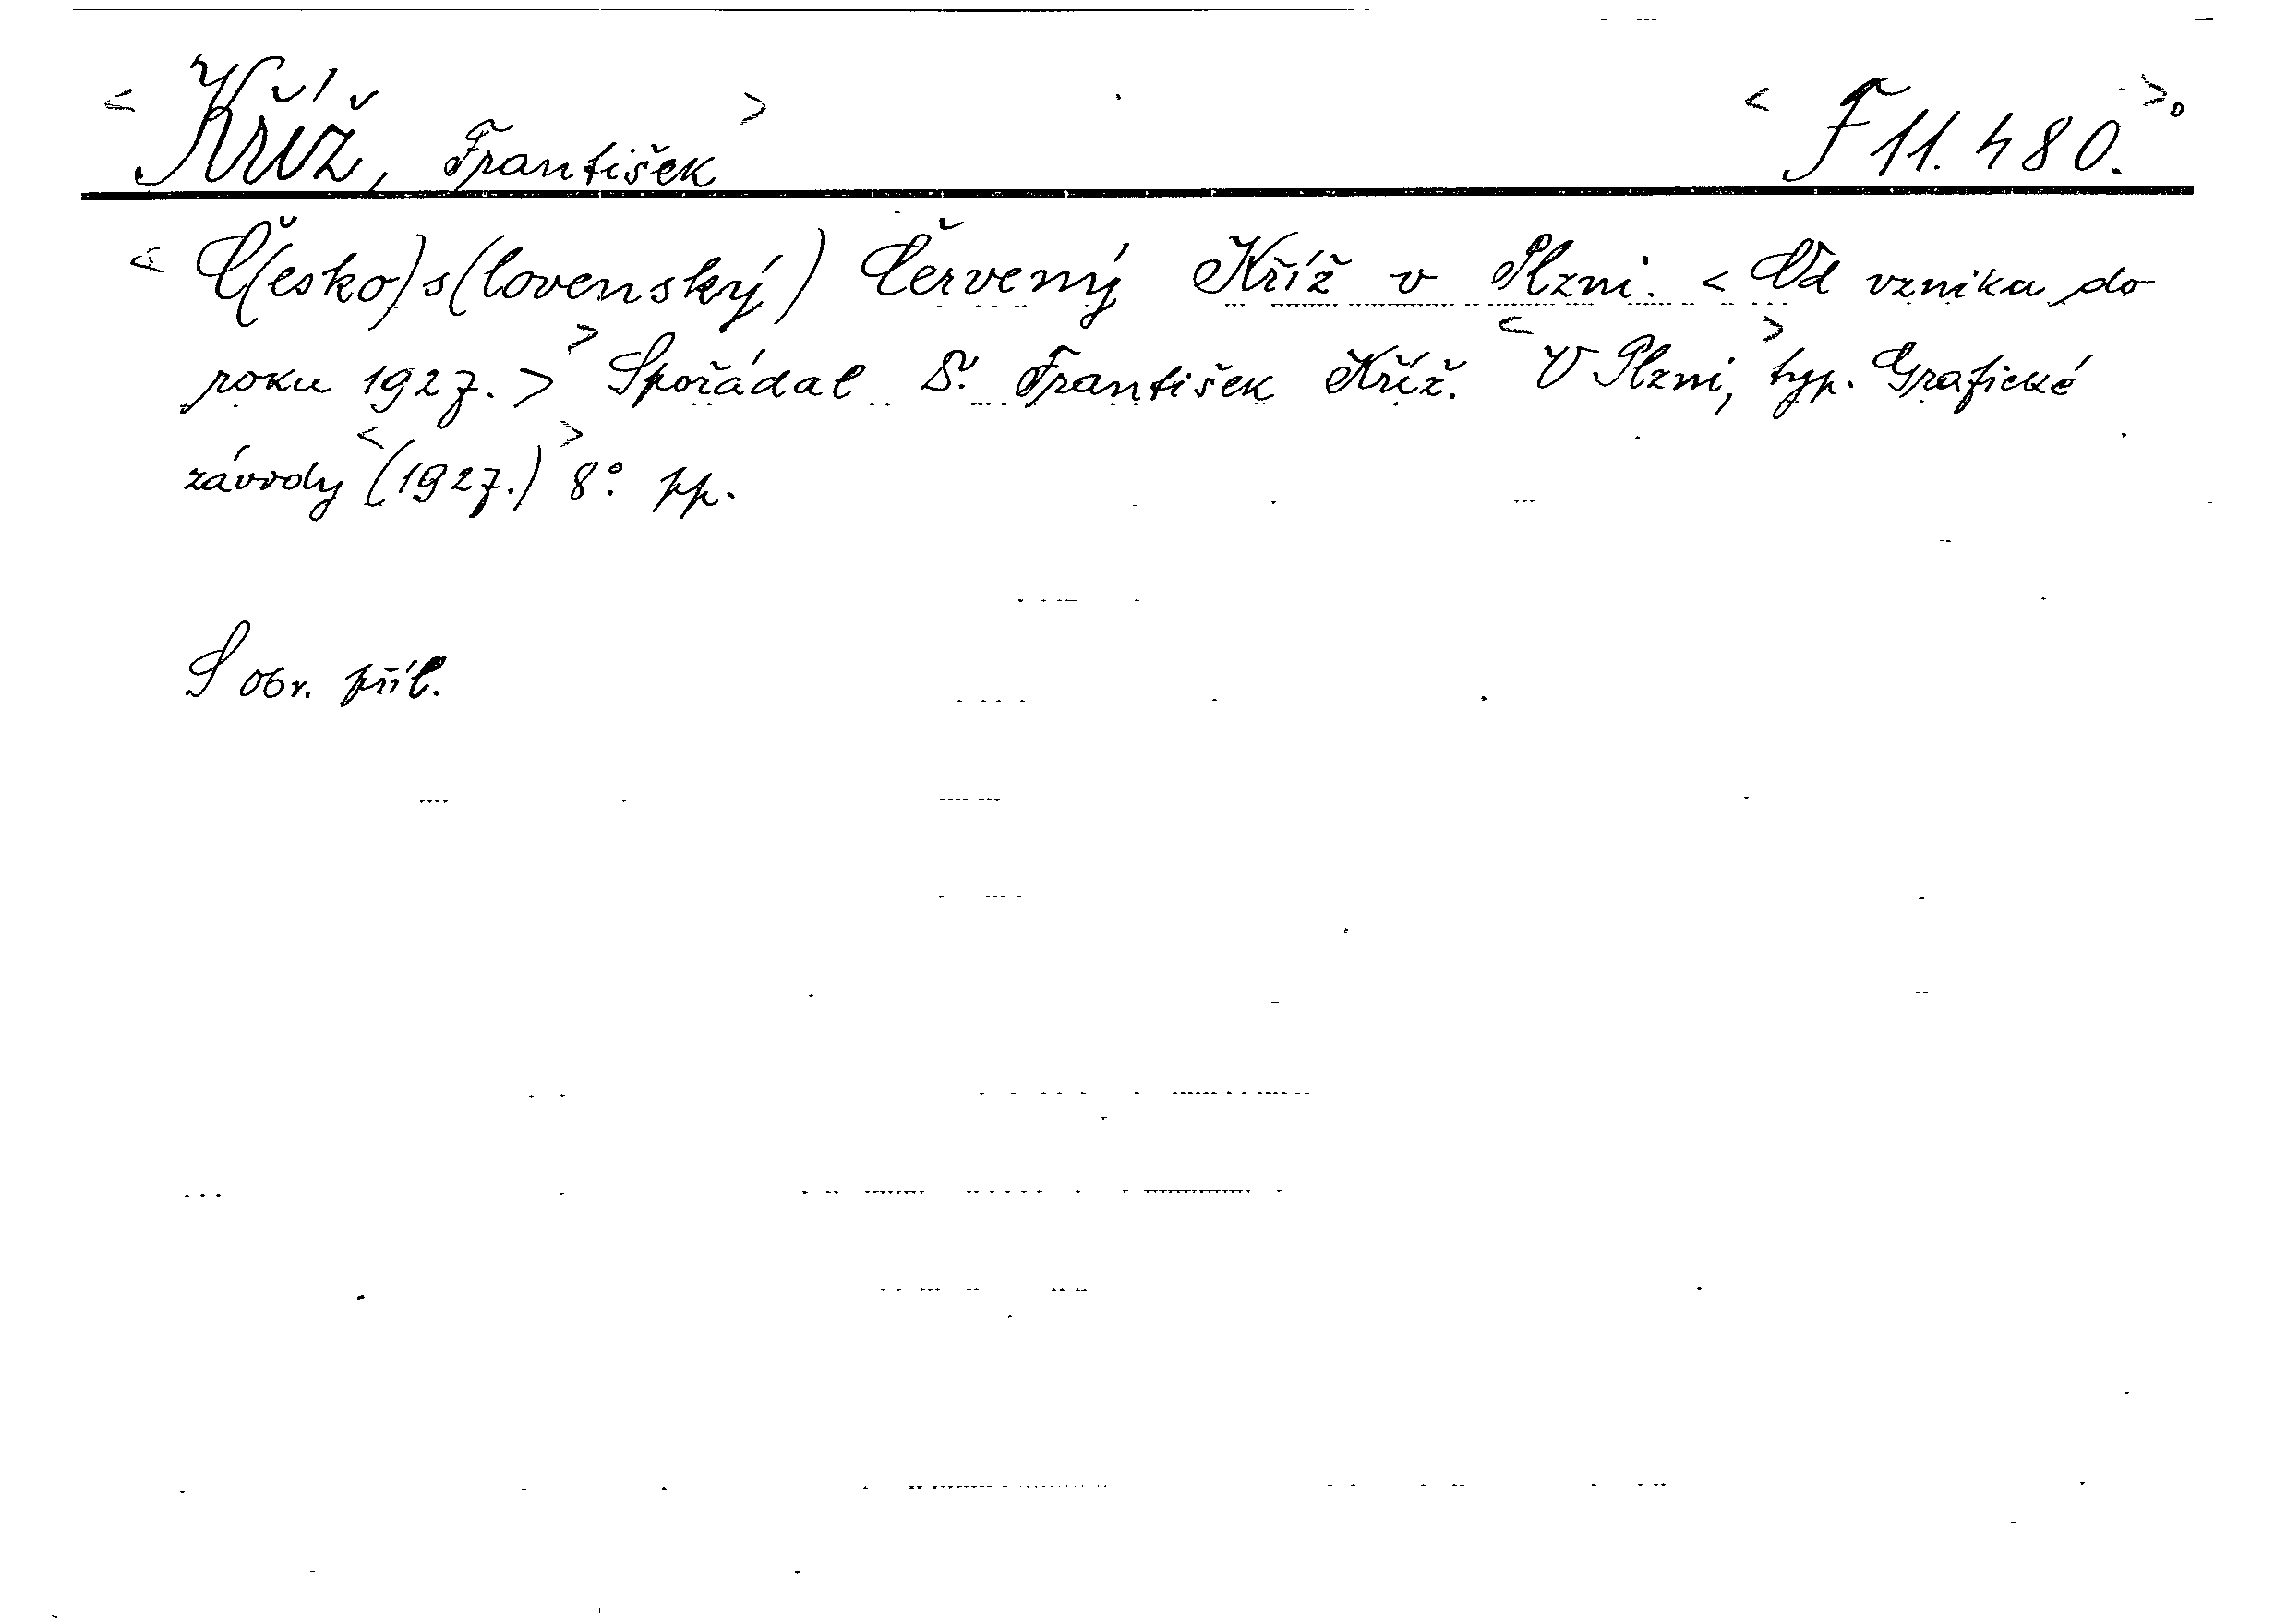 < Kříž, František > < F 11.480. >
< Č(esko)s(lovenský) Červený Kříž v Plzni. < Od vzniku do
roku 1927. > > Spořádal S. František Kříž. < V Plzni, > typ. Grafické
závody < (1927.) > 8° pp.
S obr. příl.